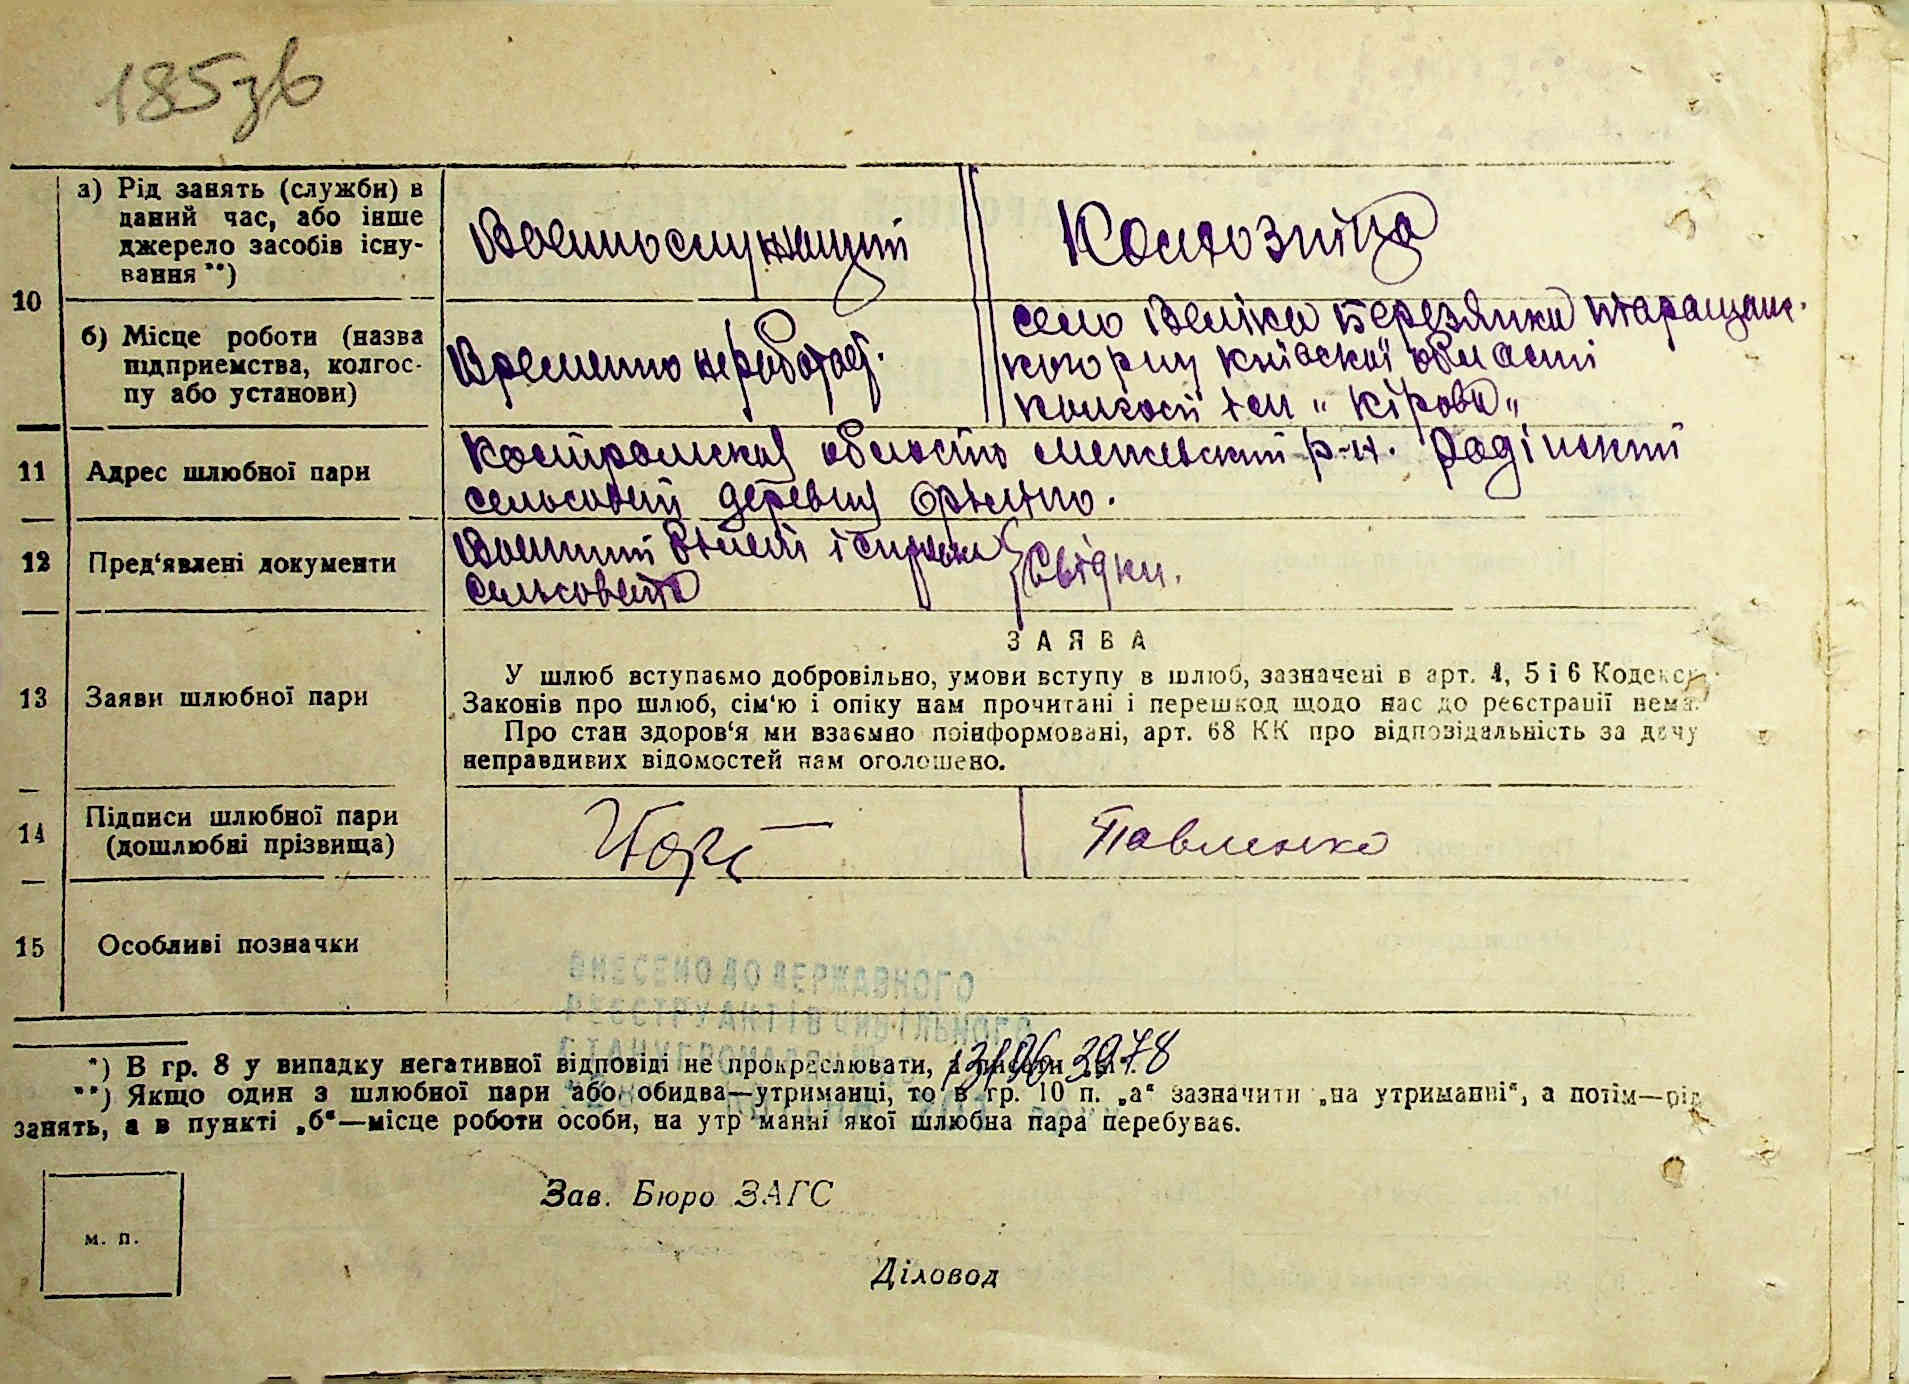 185зв
10
а) Рід занять (служби) в
даний час, або інше
джерело засобів існу-
вання **)
Военнослужащий
Колгозніца
б) Місце роботи (назва
підприемства, колгос-
пу або установи)
Временно не работает.
село Веліка Березянка Таращанс-
кого р-ну Киівскоі області
колгосп ім „ Кірова „
11
Адрес шлюбної пари
Костромская область Межевский р-н.
сельсовет деревня
12
Пред‘явлені документи
Военний білет і справка
сельсовета
Свідки.
13
Заяви шлюбної пари
ЗАЯВА
У шлюб вступаємо добровільно, умови вступу в шлюб, зазначені в арт. 4, 5 і 6 Кодексу
Законів про шлюб, сім‘ю і опіку нам прочитані і перешкод щодо нас до реєстрації нема.
Про стан здоров‘я ми взаємно поінформовані, арт. 68 КК про відповідальність за дачу
неправдивих відомостей нам оголошено.
14
Підписи шлюбної пари
(дошлюбні прізвища)
Павленко
15
Особливі позначки
ВНЕСЕНО ДО ДЕРЖАВНОГО
РЕЄСТРУ АКТІВ ЦИВІЛЬНОГО
СТАНУ ГРОМАДЯН
*) В гр. 8 у випадку негативної відповіді не прокреслювати, а писати „ні“.
**) Якщо один з шлюбної пари або обидва—утриманці, то в гр. 10 п. „а“ зазначити „на утриманні“, а потім—рід
занять, а в пункті „б“—місце роботи особи, на утр манні якої шлюбна пара перебуває.
м. п.
Зав. Бюро ЗАГС
Діловод